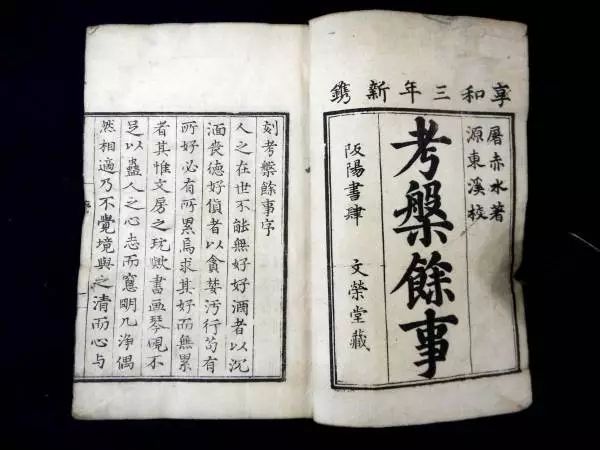 享和三年新鐫
屠赤水著
源東溪校
考槃餘事
阪陽書肆 文榮堂藏
刻考槃餘事序
人之在世不能無好好酒者以沉
湎喪德好貨者以貪婪污行苟有
所好必有所累焉求其好而無累
者其惟文房之玩歟書画琴硯不
足以蠱人之心志而窓明几淨偶
然相適乃不覺境與之清而心与